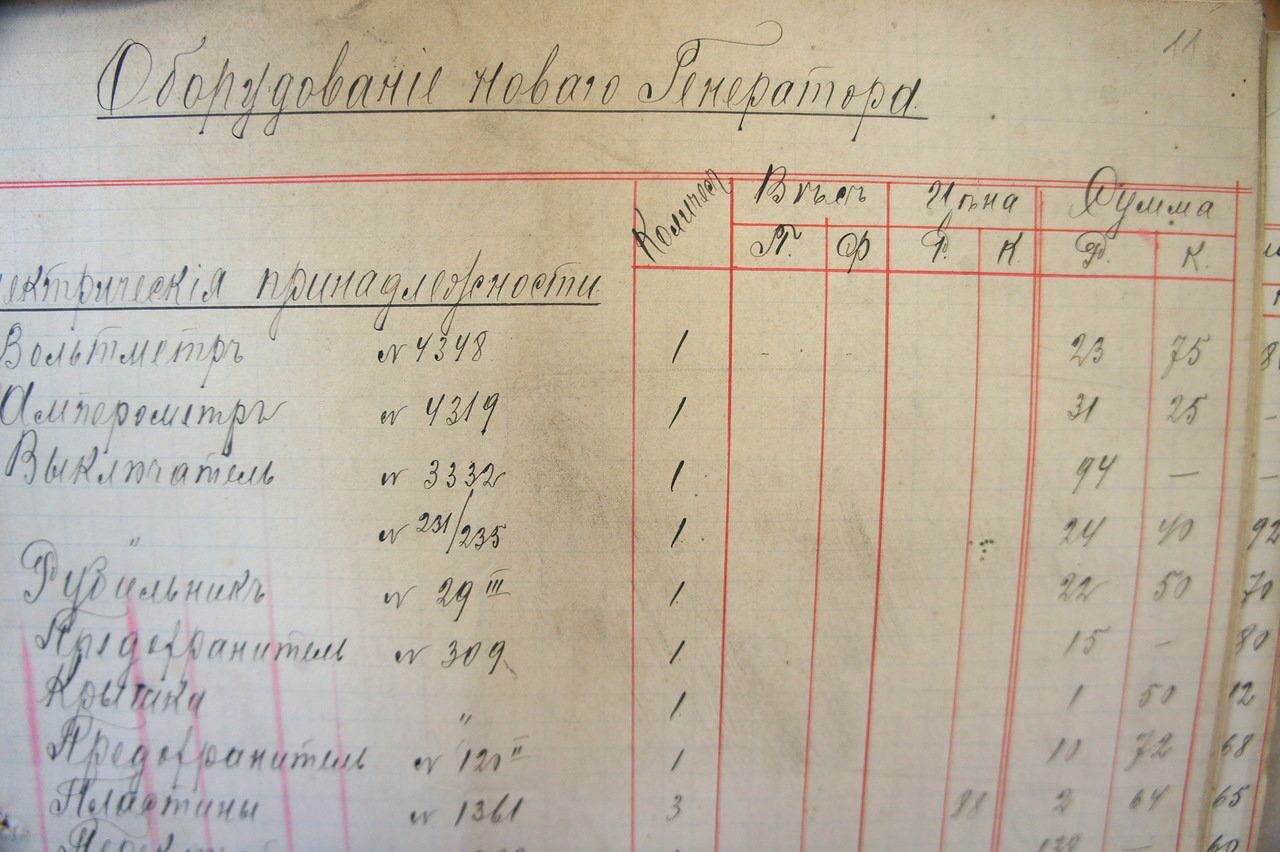 11
Оборудованіе новаго Генератора
Количест Вѣсъ Цѣна Сумма
П. Ф Р. К. Р. К.
ектрическія принадлежности
Вольтметръ № 4348 1 23 75
Амперометръ № 4319 1 31 25
Выключатель № 3332 1 94 —
" № 231/235 1 24 40 92
Рубильникъ № 29 III 1 22 50 70
Предохранитель № 309 1 15 — 80
Крышка " 1 1 50 12
Предохранитель № 120 II 1 10 72 68
Пластины № 1361 3 88 2 64 65